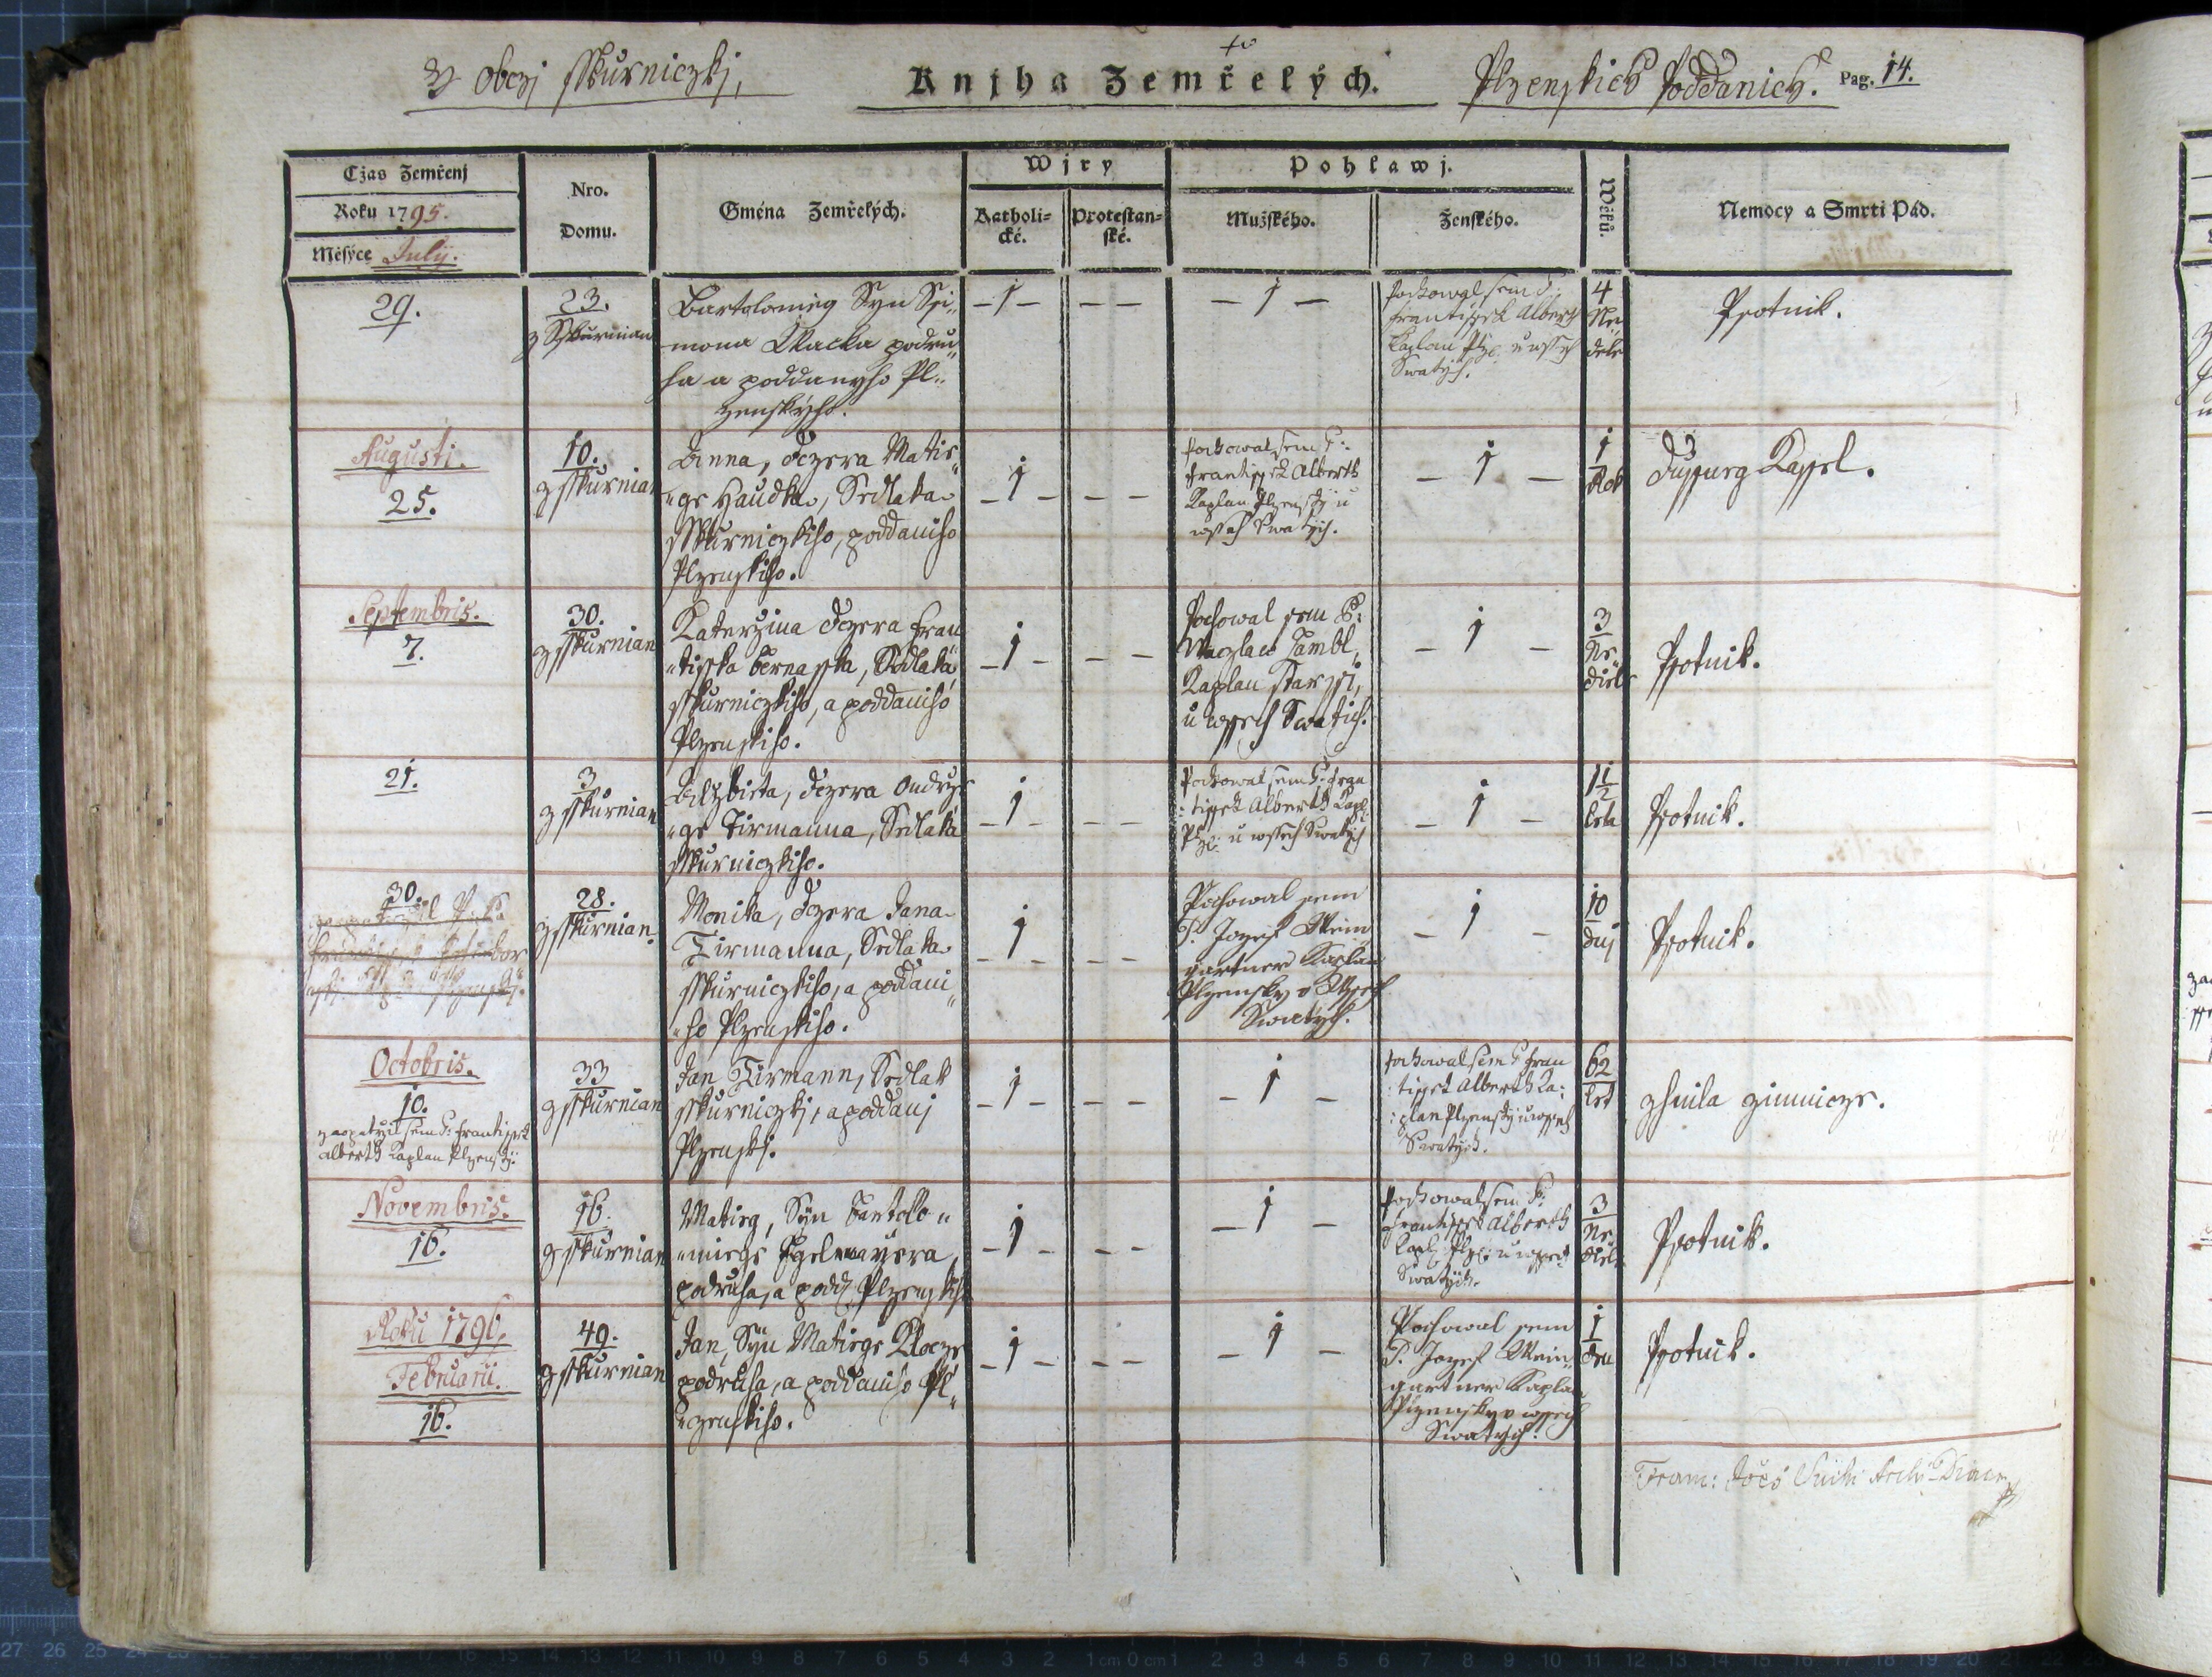 z Obczj sskurniczkj,
Knjha Zemřelých.
Plzenskich Poddanich.
Pag. 14.
Cžas Zemřenj
Roku 1795.
Měsýce July.
Nro.
Domu.
Gména Zemřelých.
Wjry
Katholi-
cké.
Protestan-
ské.
Pohlawj.
Mužského.
Ženského.
Wěků.
Nemocy a Smrti Pád.
29.
23.
z Sskurnian
Bartolomieg Syn Ssi„
mona Macka podru„
ha a poddanyho Pl„
zenskýho.
– 1 –
– –
– 1 –
Pochowal sem P:
Frantissek Alberth
Kaplan Plz: u wssech
Swatých.
4
Ne
dele
Psotnik.
Augusti.
25.
10.
z sskurnian
Anna, dczera Matie„
„ge Haudka, Sedlaka
sskurniczkiho, poddaniho
Plzenskiho.
– 1 –
– –
Pochowal sem P:
Frantissek Alberth
Kaplan Plzenský u
wssech Swatých.
– 1 –
1
Rok
dussurg Kassel.
Septembris.
7.
30.
z sskurnian
Katerzina dczera Fran
„tisska Bernasska, Sedlaka
sskurniczkiho, a poddaniho
Plzenskiho.
– 1 –
– –
Pochowal sem P:
Waczlaw Tambl,
Kaplan starssi,
u wssech Swatich.
– 1 –
3
Ne„
diele
Psotnik.
21.
3
z sskurnian
Alzbieta, dczera Ondrze
„ge Tirmanna, Sedlaka
sskurniczkiho.
– 1 –
– –
Pochowal sem P: Fran
: tissek Alberth Kapl:
Plz: u wssech Swatých
– 1 –
1 1/2
leta
Psotnik.
30.
28.
z sskurnian.
Monika, dczera Jana
Tirmanna, Sedlaka
sskurniczkiho, a poddani„
„ho Plzenskiho.
– 1 –
– –
Pochowal sem
P. Jozef Wein
gartner Kaplan
Plzensky u Wssech
Swatých.
– 1 –
10
dnj
Psotnik.
Octobris.
10.
zaopatrzil sem P: Frantissek
Alberth Kaplan Plzenský.
33
z sskurnian
Jan Tirmann, Sedlak
sskurniczkj, a poddanj
Plzenskj.
– 1 –
– –
– 1 –
Pochowal sem P Fran
: tissek Alberth Ka:
: plan Plzenský u wssech
Swatých.
62
let
zhnila zimnicze.
Novembris.
16.
16.
z sskurnian
Matieg, Syn Bartolo„
„miege Egelmayera,
podruha, a podd: Plzenskiho
– 1 –
– –
– 1 –
Pochowal sem P:
Frantissek Alberth
Kapl: Plz: u wssech
Swatých.
3
Ne
diele
Psotnik.
Roku 1796,
Februarii.
16.
49.
z sskurnian
Jan, Syn Matiege Klocze
podruha, a poddaniho Pl„
„zenskiho.
– 1 –
– –
– 1 –
Pochowal sem
P. Jozef Wein„
gartner Kaplan
Plzensky u wssech
Swatých.
1
den
Psotnik.